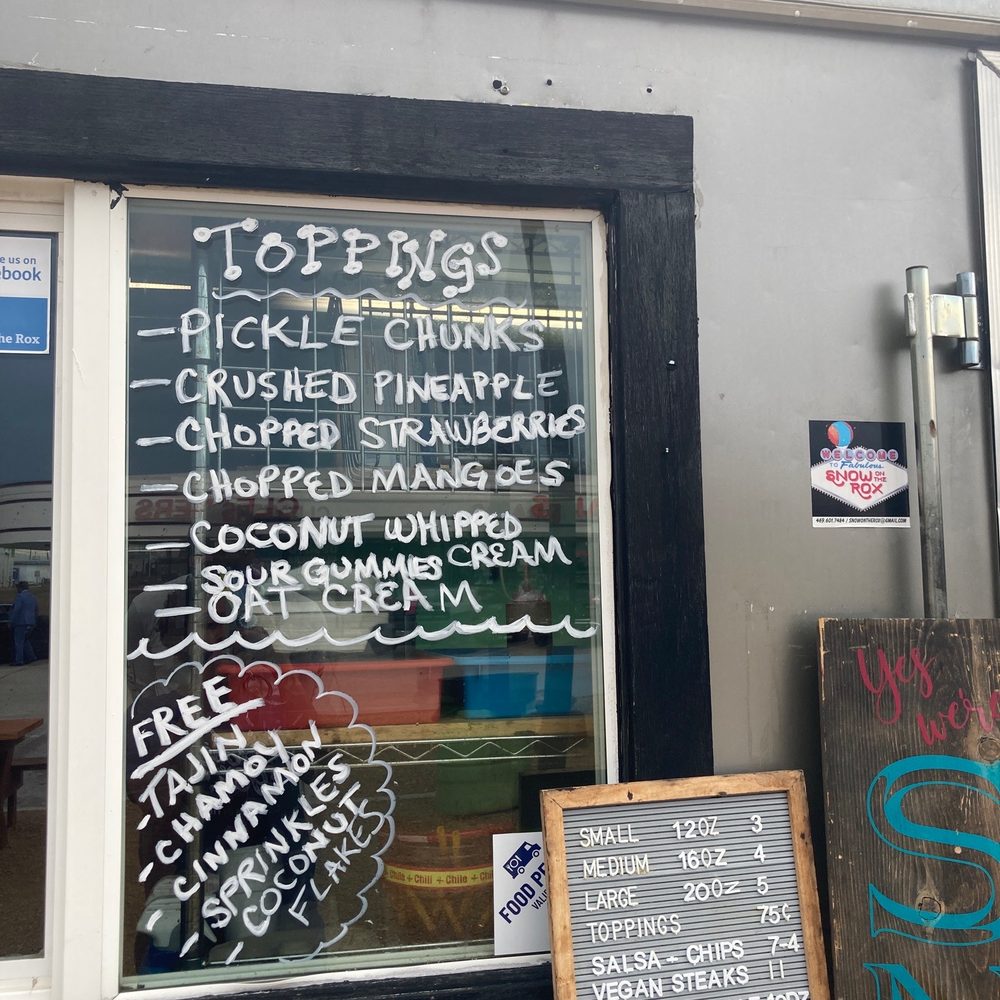 TOPPINGS
– PICKLE CHUNKS
– CRUSHED PINEAPPLE
– CHOPPED STRAWBERRIES
– CHOPPED MANGOES
– COCONUT WHIPPED CREAM
– SOUR GUMMIES
– OAT CREAM
FREE
- TAJIN
- CHAMOY
- CINNAMON
- SPRINKLES
- COCONUT
FLAKES
e us on
ebook
he Rox
WELCOME
TO Fabulous
SNOW ON THE ROX
469.601.7484 / SNOWONTHEROX@GMAIL.COM
Yes
we're
S
FOOD PE
VALI
Chile + Chile + Chile +
SMALL 12OZ 3
MEDIUM 16OZ 4
LARGE 20OZ 5
TOPPINGS 75¢
SALSA + CHIPS 7-4
VEGAN STEAKS 11